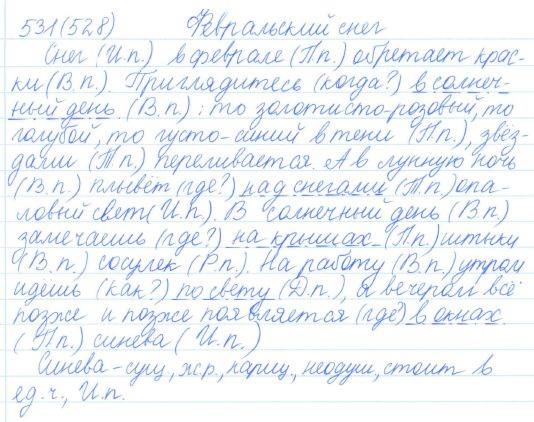 531(528) Февральский снег
Снег (И.п.) в феврале (П.п.) обретает крас-
ки (В.п.). Приглядитесь (когда?) в солнеч-
ный день (В.п.): то золотисто-розовый, то
голубой, то густо-синий в тени (П.п.), звёз-
дами (Т.п.) переливается. А в лунную ночь
(В.п.) плывёт (где?) над снегами (Т.п.) опа-
ловый свет (И.п.). В солнечный день (В.п.)
замечаешь (где?) на крышах (П.п.) штыки
(В.п.) сосулек (Р.п.). На работу (В.п.) утром
идёшь (как?) по свету (Д.п.), а вечером всё
позже и позже появляется (где?) в окнах
(П.п.) синева (И.п.)
Синева-сущ., ж.р., нариц., неодуш., стоит в
ед.ч., И.п.